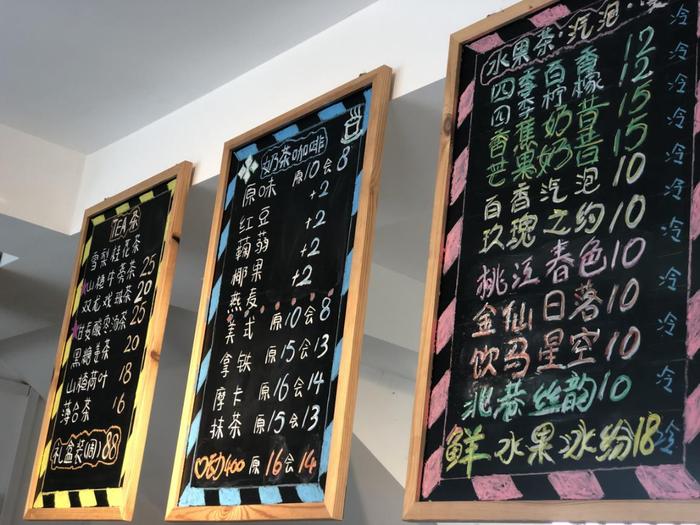 TEA茶
雪梨桂花茶 25
山楂牛蒡茶 20
双龙戏珠茶 25
甘麦酸枣汤茶 20
黑糖姜茶 18
山楂荷叶 16
薄合茶
礼盒装(周) 88
奶茶咖啡
原味 原10会8
红豆 +2
蒟蒻 +2
椰果 +2
燕麦 +2
美式 原10会8
拿铁 原15会13
摩卡 原16会14
抹茶 原15会13
♡动400 原16会14
水果茶·汽泡·
四季百香 12 冷
四季柠檬 12 冷
香蕉奶昔 15 冷
芒果奶昔 15 冷
百香汽泡 10 冷
玫瑰之约 10 冷
桃江春色 10 冷
金仙日落 10 冷
饮马星空 10 冷
北巷丝韵 10 冷
鲜水果冰纷 18 冷